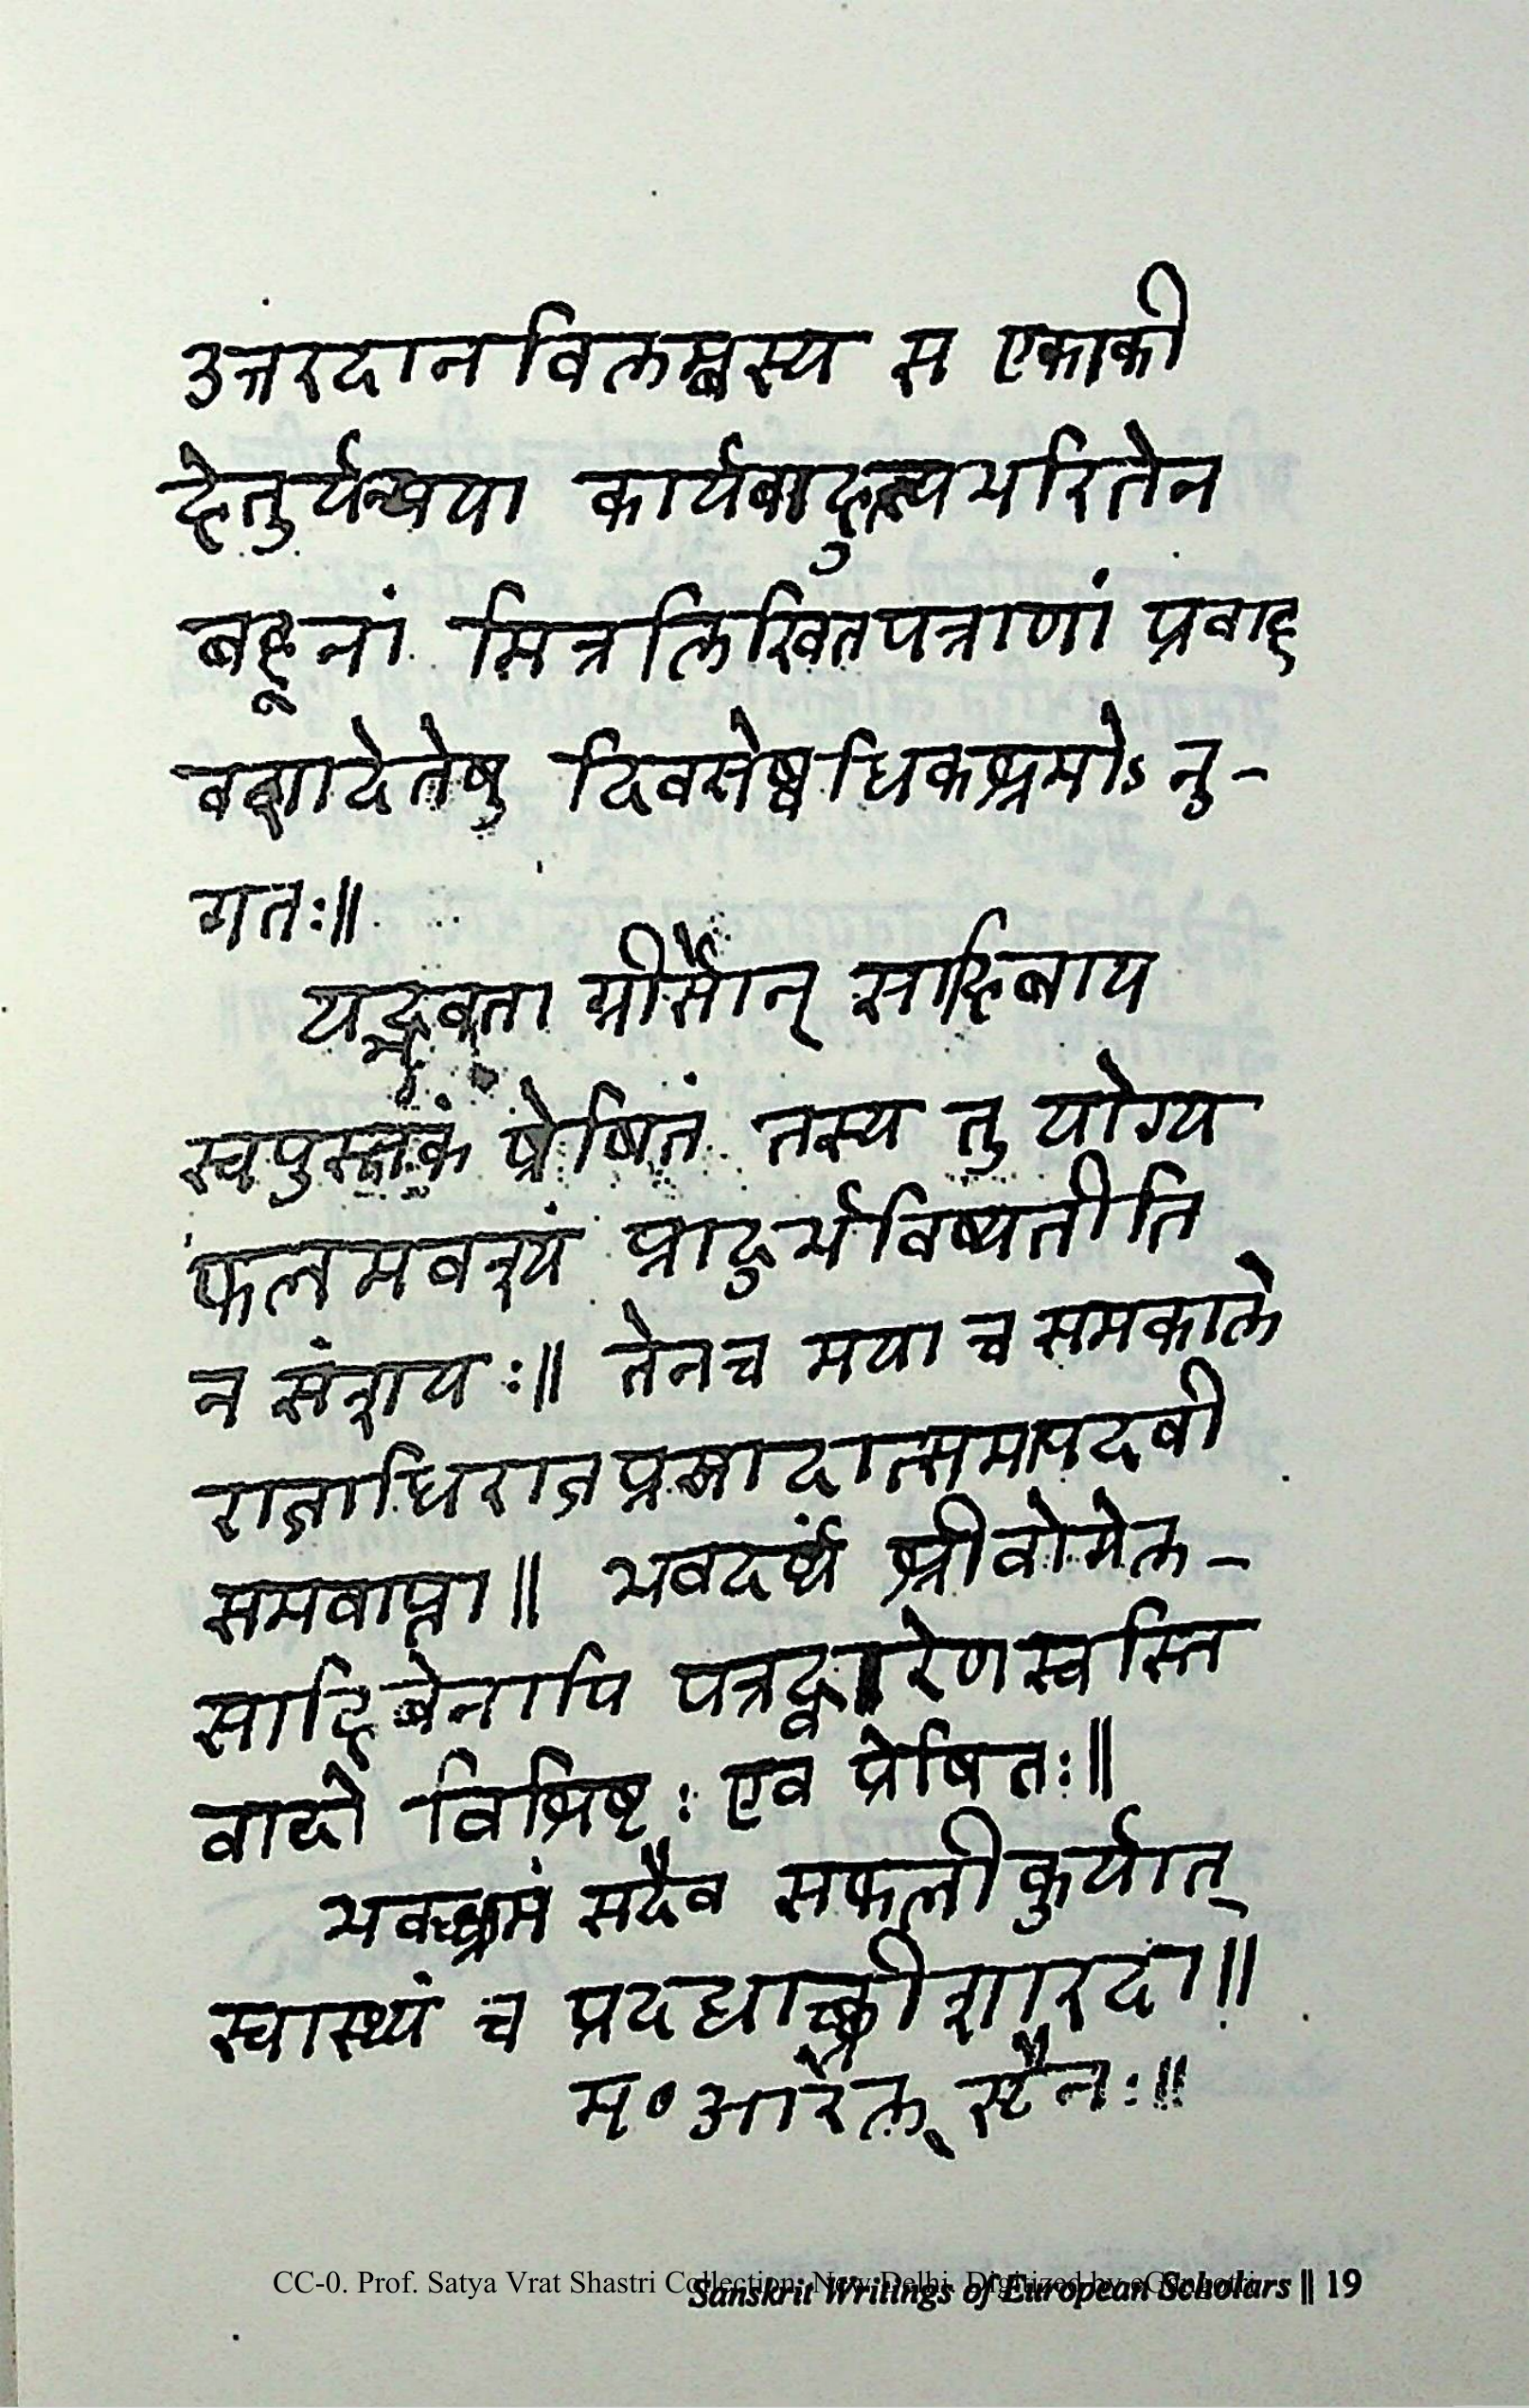 उत्तरदानविलम्बस्य स एकाकी
हेतुर्यन्मया कार्यबाहुल्यभारितेन
बहूनां मित्रलिखितपत्राणां प्रवाह
वशादेतेषु दिवसेष्वधिकश्रमोऽनु-
गतः॥
यद्भवता ग्रीर्सोन् साहिबाय
स्वपुस्तकं प्रेषितं तस्य तु योग्य
फलमवश्यं प्रादुर्भविष्यतीति
न संशयः॥ तेन च मया च समकाले
राजाधिराजप्रसादात्समापदवी
समवाप्ता॥ भवदर्थं श्रीवोगेल-
साहिबेनापि पत्रद्वारेण स्वस्ति
वादो विशिष्टः एव प्रेषितः॥
भवच्छ्रमं सदैव सफलीकुर्यात्
स्वास्थ्यं च प्रदद्याच्छ्रीशारदा॥
म॰ आरेल् स्टैनः॥
CC-0. Prof. Satya Vrat Shastri Collection, New Delhi. Digitized by eGangotri
Sanskrit Writings of European Scholars || 19